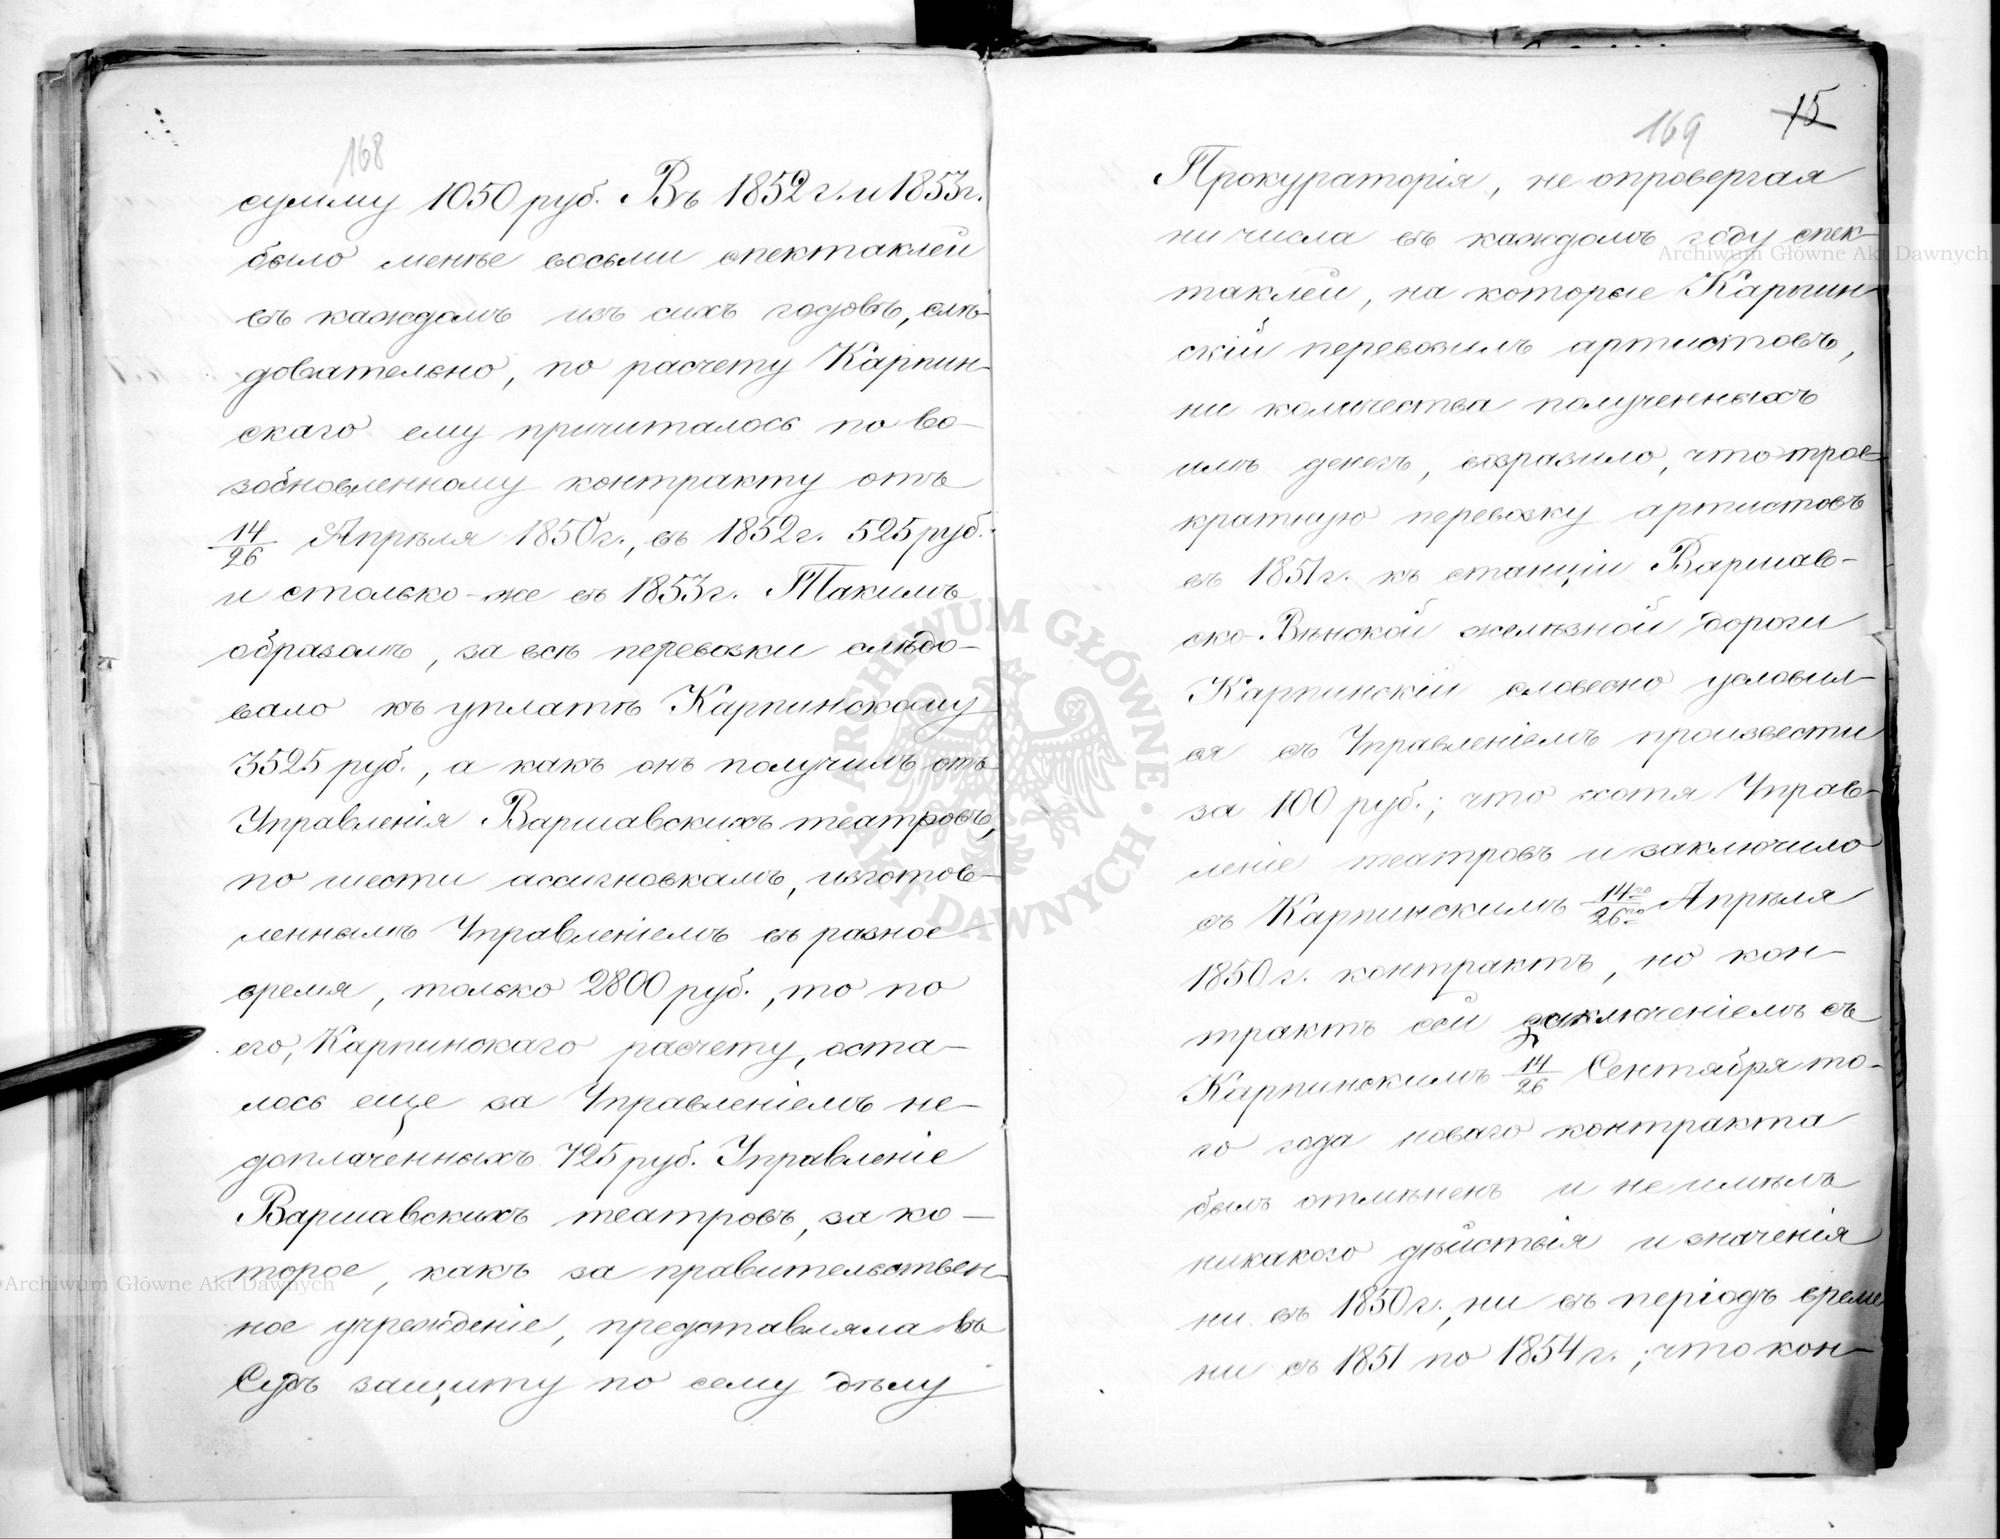 168
сумму 1050 руб. Въ 1852 г. и 1853 г.
было менѣе восьми спектаклей
въ каждомъ изъ сихъ годовъ, слѣ-
довательно, по расчету Карпин-
скаго ему причиталось по во-
зобновленному контракту отъ
14/26 Апрѣля 1850 г., въ 1852 г. 525 руб.
и столько-же въ 1853 г. Такимъ
образомъ, за всѣ перевозки слѣдо-
вало къ уплатѣ Карпинскому
3525 руб., а какъ онъ получилъ отъ
Управленія Варшавскихъ театровъ,
по шести ассигновкамъ, изготов-
леннымъ Управленіемъ въ разное
время, только 2800 руб., то по
его, Карпинскаго расчету, оста-
лось еще за Управленіемъ не-
доплаченныхъ 725 руб. Управленіе
Варшавскихъ театровъ, за ко-
торое, какъ за правительствен-
ное учрежденіе, представляла въ
Судъ защиту по сему дѣлу
169 15
Прокураторія, не опровергая
ни числа въ каждомъ году спек-
таклей, на которые Карпин-
скій перевозилъ артистовъ,
ни количества полученныхъ
имъ денегъ, возразило, что трое-
кратную перевозку артистовъ
въ 1851 г. къ станціи Варшав-
ско-Вѣнской желѣзной дороги
Карпинскій словесно условил-
ся съ Управленіемъ произвести
за 100 руб.; что хотя Управ-
леніе театровъ и заключило
съ Карпинскимъ 14го/26го Апрѣля
1850 г. контрактъ, но кон-
трактъ сей заключеніемъ съ
Карпинскимъ 14/26 Сентября то-
го года новаго контракта
былъ отмѣненъ и не имѣлъ
никакого дѣйствія и значенія
ни въ 1850 г., ни въ періодъ време
ни съ 1851 по 1854 г.; что кон-
Archiwum Główne Akt Dawnych
Archiwum Główne Akt Dawnych
ARCHIWUM GŁÓWNE AKT DAWNYCH